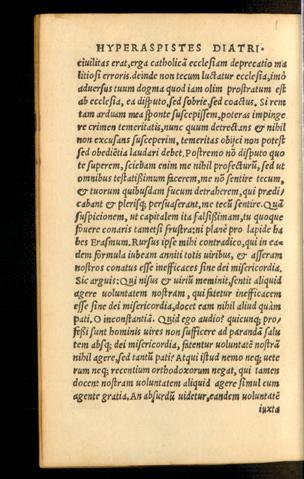 HYPERASPISTES DIATRI·
ciuilitas erat, erga catholicā ecclesiam deprecatio ma
litiosi erroris. deinde non tecum luctatur ecclesia, imò
aduersus tuum dogma quod iam olim prostratum est
ab ecclesia, ea disputo, sed sobrie, sed coactus. Si rem
tam arduam mea sponte suscepissem, poteras impinge
re crimen temeritatis, nunc quum detrectans & nihil
non excusans susceperim, temeritas obijci non potest
sed obediētia laudari debet. Postremo nō disputo quo
te superem, sciebam enim me nihil profecturū, sed ut
omnibus testatissimum facerem, me nō sentire tecum,
& tuorum quibusdam fucum detraherem, qui prædi
cabant & plerisq; persuaserant, me tecū sentire. Quā
suspicionem, ut capitalem ita falsissimam, tu quoque
fouere conaris tametsi frustra: ni planè pro lapide ha
bes Erasmum. Rursus ipse mihi contradico, qui in ea=
dem formula iubeam anniti totis uiribus, & asseram
nostros conatus esse inefficaces sine dei misericordia.
Sic arguis: Qui nisus et uiriū meminit, sentit aliquid
agere uoluntatem nostram, qui fatetur inefficacem
esse sine dei misericordia, docet eam nihil aliud quàm
pati. O inconstantiā. Quid ego audio? quicunq; pro=
fessi sunt hominis uires non sufficere ad parandā salu
tem absq; dei misericordia, fatentur uoluntatē nostrā
nihil agere, sed tantū pati? Atqui istud nemo neq; uete
rum neq; recentium orthodoxorum negat, qui tamen
docent nostram uoluntatem aliquid agere simul cum
agente gratia. An absurdū uidetur, eandem uoluntatē
iuxta